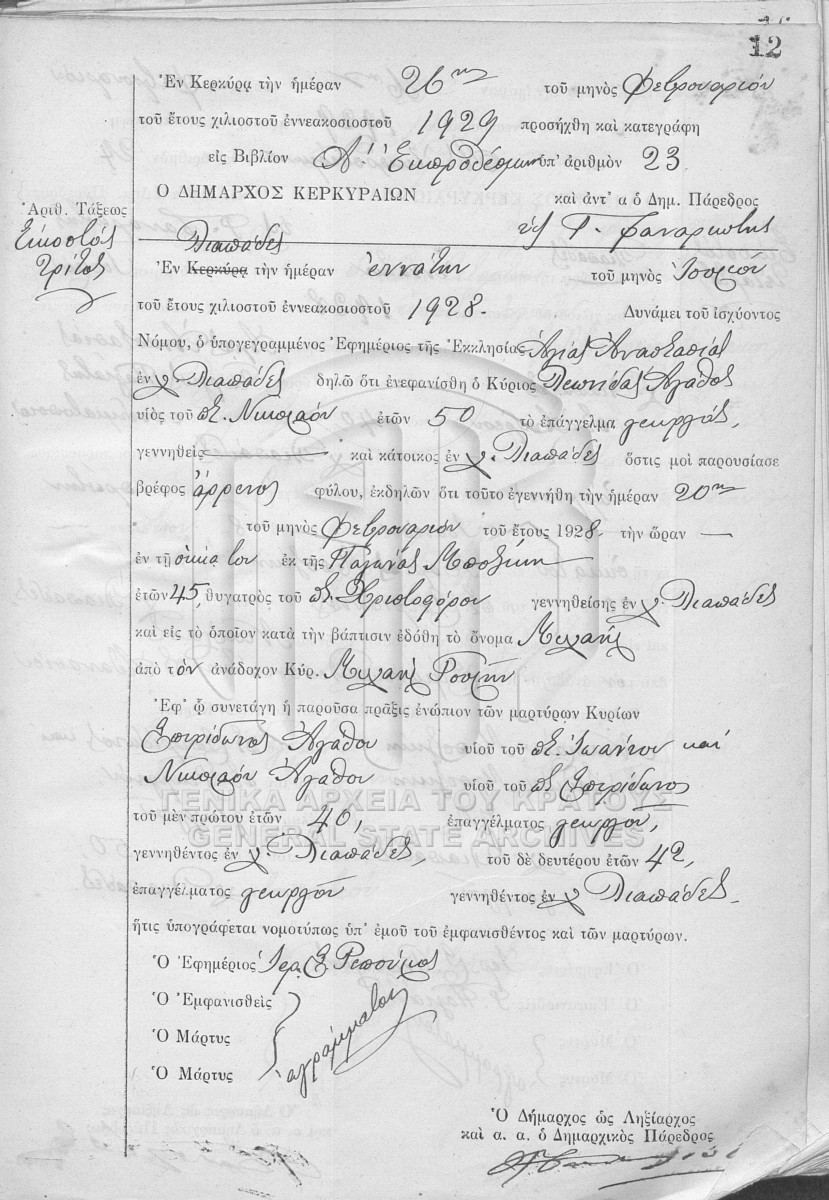 12
Ἐν Κερκύρᾳ τὴν ἡμέραν 26ην τοῦ μηνὸς Φεβρουαρίου
τοῦ ἔτους χιλιοστοῦ ἐννεακοσιοστοῦ 1929 προσήχθη καὶ κατεγράφη
εἰς Βιβλίον Α' Ἐκπροθέσμων ὑπ' ἀριθμὸν 23
Ο ΔΗΜΑΡΧΟΣ ΚΕΡΚΥΡΑΙΩΝ καὶ ἀντ' α ὁ Δημ. Πάρεδρος
Ἀριθ. Τάξεως
Εἰκοστὸς
τρίτος
Γ. Φαναριώτης
Λιαπάδες
Ἐν Κερκύρᾳ τὴν ἡμέραν ἐννάτην τοῦ μηνὸς Ἰουνίου
τοῦ ἔτους χιλιοστοῦ ἐννεακοσιοστοῦ 1928. Δυνάμει τοῦ ἰσχύοντος
Νόμου, ὁ ὑπογεγραμμένος Ἐφημέριος τῆς Ἐκκλησίας Ἁγίας Ἀναστασίας
ἐν χ. Λιαπάδες δηλῶ ὅτι ἐνεφανίσθη ὁ Κύριος Λεωνίδας Ἀγάθος
υἱὸς τοῦ ποτ. Νικολάου ἐτῶν 50 τὸ ἐπάγγελμα γεωργός,
γεννηθεὶς καὶ κάτοικος ἐν χ. Λιαπάδες ὅστις μοὶ παρουσίασε
βρέφος ἄρρενος φύλου, ἐκδηλῶν ὅτι τοῦτο ἐγεννήθη τὴν ἡμέραν 20ην
τοῦ μηνὸς Φεβρουαρίου τοῦ ἔτους 1928. τὴν ὥραν —
ἐν τῇ οἰκίᾳ του ἐκ τῆς
ἐτῶν 45, θυγατρὸς τοῦ ποτ. Χριστοφόρου γεννηθείσης ἐν χ. Λιαπάδες
καὶ εἰς τὸ ὁποῖον κατὰ τὴν βάπτισιν ἐδόθη τὸ ὄνομα Μιχαὴλ
ἀπὸ τὸν ἀνάδοχον Κύρ. Μιχαὴλ
Ἐφ' ᾧ συνετάγη ἡ παροῦσα πρᾶξις ἐνώπιον τῶν μαρτύρων Κυρίων
Σπυρίδωνος Ἀγάθου υἱοῦ τοῦ ποτ. Ἰωάννου καὶ
Νικολάου Ἀγάθου υἱοῦ τοῦ ποτ. Σπυρίδωνος
ΓΕΝΙΚΑ ΑΡΧΕΙΑ ΤΟΥ ΚΡΑΤΟΥΣ
τοῦ μὲν πρώτου ἐτῶν 40, ἐπαγγέλματος γεωργοῦ,
GENERAL STATE ARCHIVES
γεννηθέντος ἐν χ. Λιαπάδες, τοῦ δὲ δευτέρου ἐτῶν 42,
ἐπαγγέλματος γεωργοῦ γεννηθέντος ἐν χ. Λιαπάδες.
ἥτις ὑπογράφεται νομοτύπως ὑπ' ἐμοῦ τοῦ ἐμφανισθέντος καὶ τῶν μαρτύρων.
Ὁ Ἐφημέριος Ἱερ. Σ.
Ὁ Ἐμφανισθεὶς
Ὁ Μάρτυς
Ὁ Μάρτυς
ἀγράμματοι
Ὁ Δήμαρχος ὡς Ληξίαρχος
καὶ α. α. ὁ Δημαρχικὸς Πάρεδρος